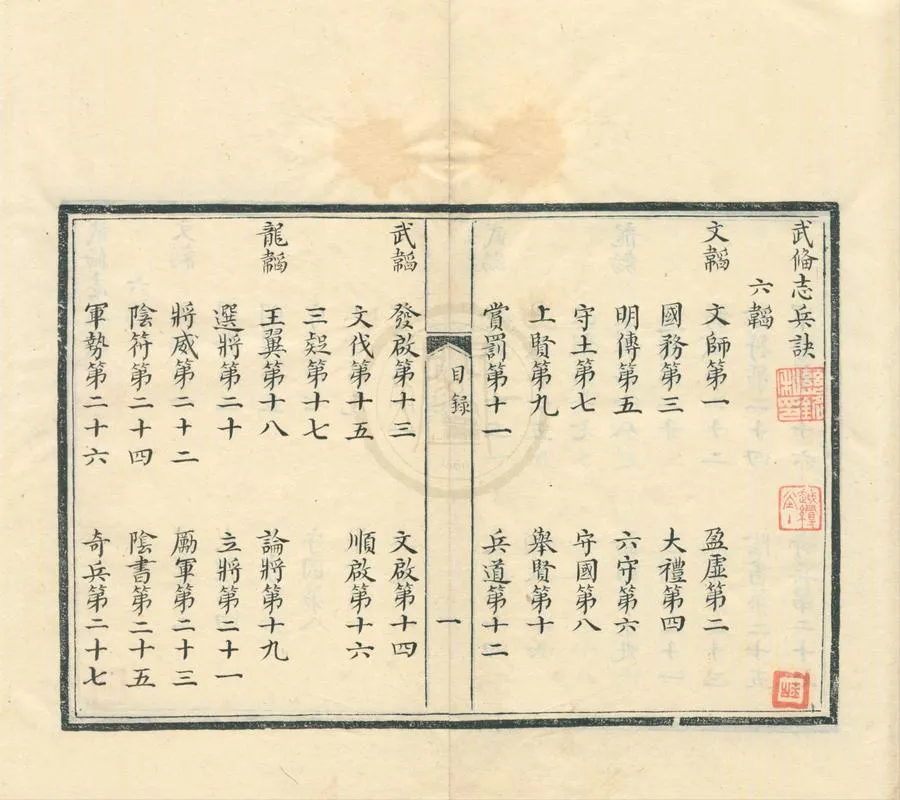 武俻志兵訣
六韜
文韜 文師第一 盈虛第二
國務第三 大禮第四
明傳第五 六守第六
守土第七 守國第八
上賢第九 舉賢第十
賞罰第十一 兵道第十二
目録 一
武韜 發啟第十三 文啟第十四
文伐第十五 順啟第十六
三疑第十七
龍韜 王翼第十八 論將第十九
選將第二十 立將第二十一
將威第二十二 勵軍第二十三
陰符第二十四 陰書第二十五
軍勢第二十六 奇兵第二十七